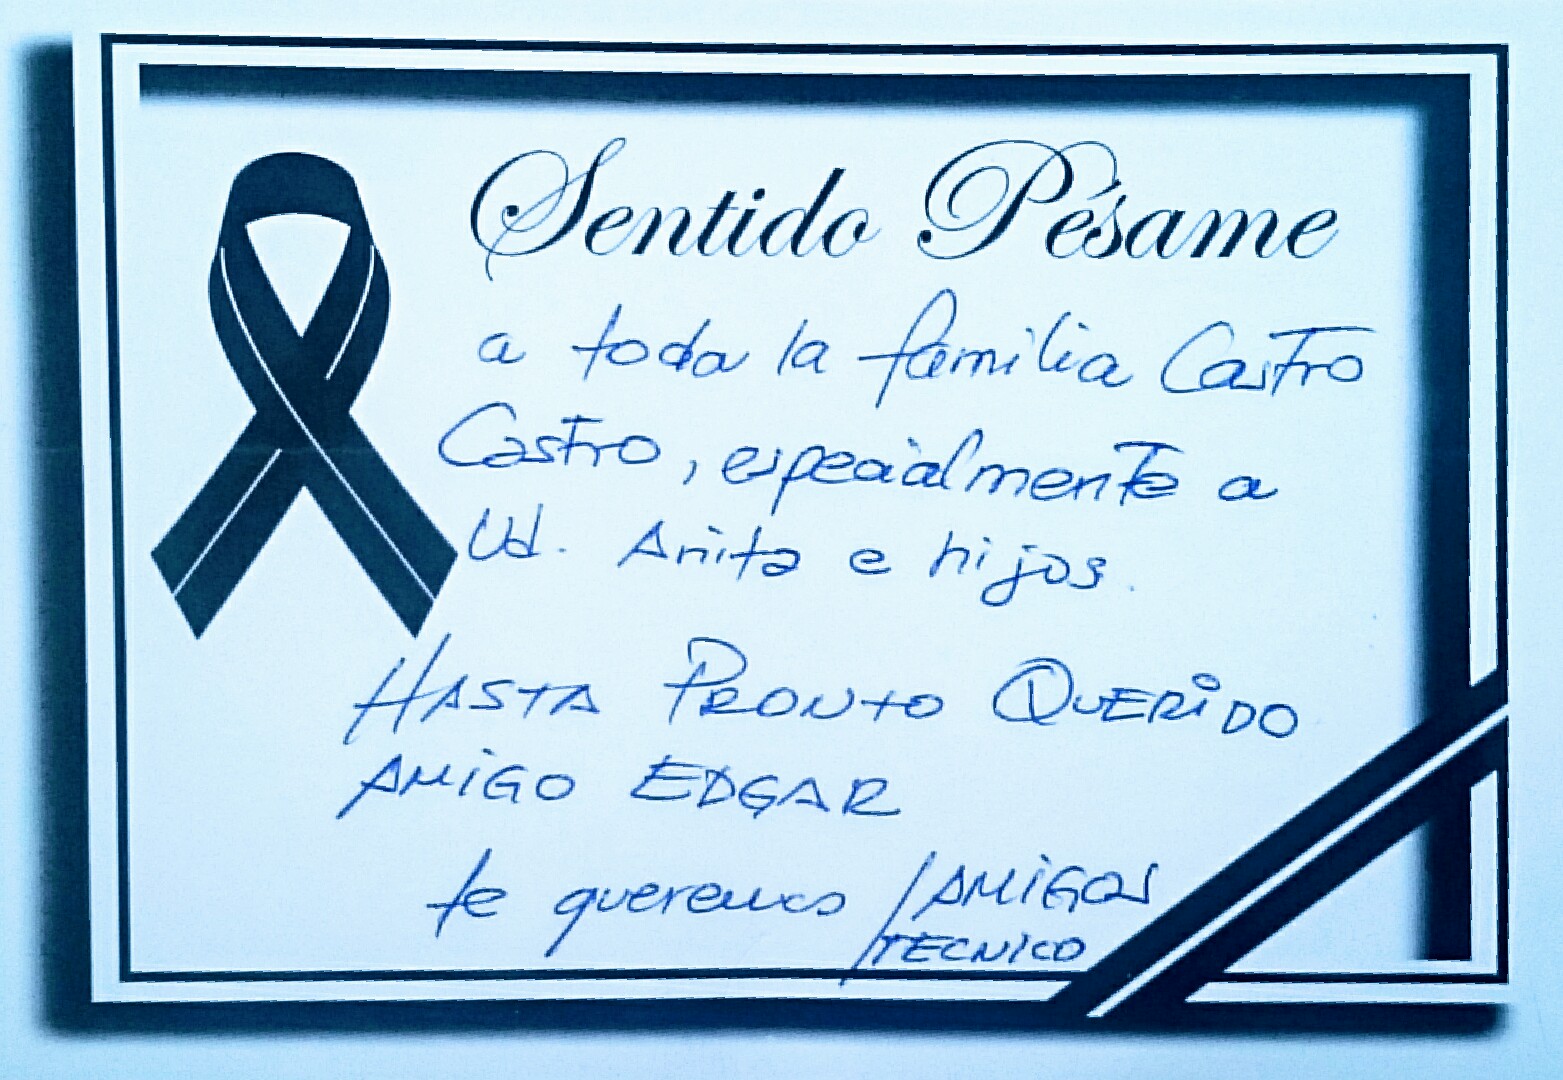 Sentido Pésame
a toda la familia Castro
Castro, especialmente a
Ud. Anita e hijos.
HASTA PRONTO QUERIDO
AMIGO EDGAR
te queremos / AMIGOS
/ TECNICO